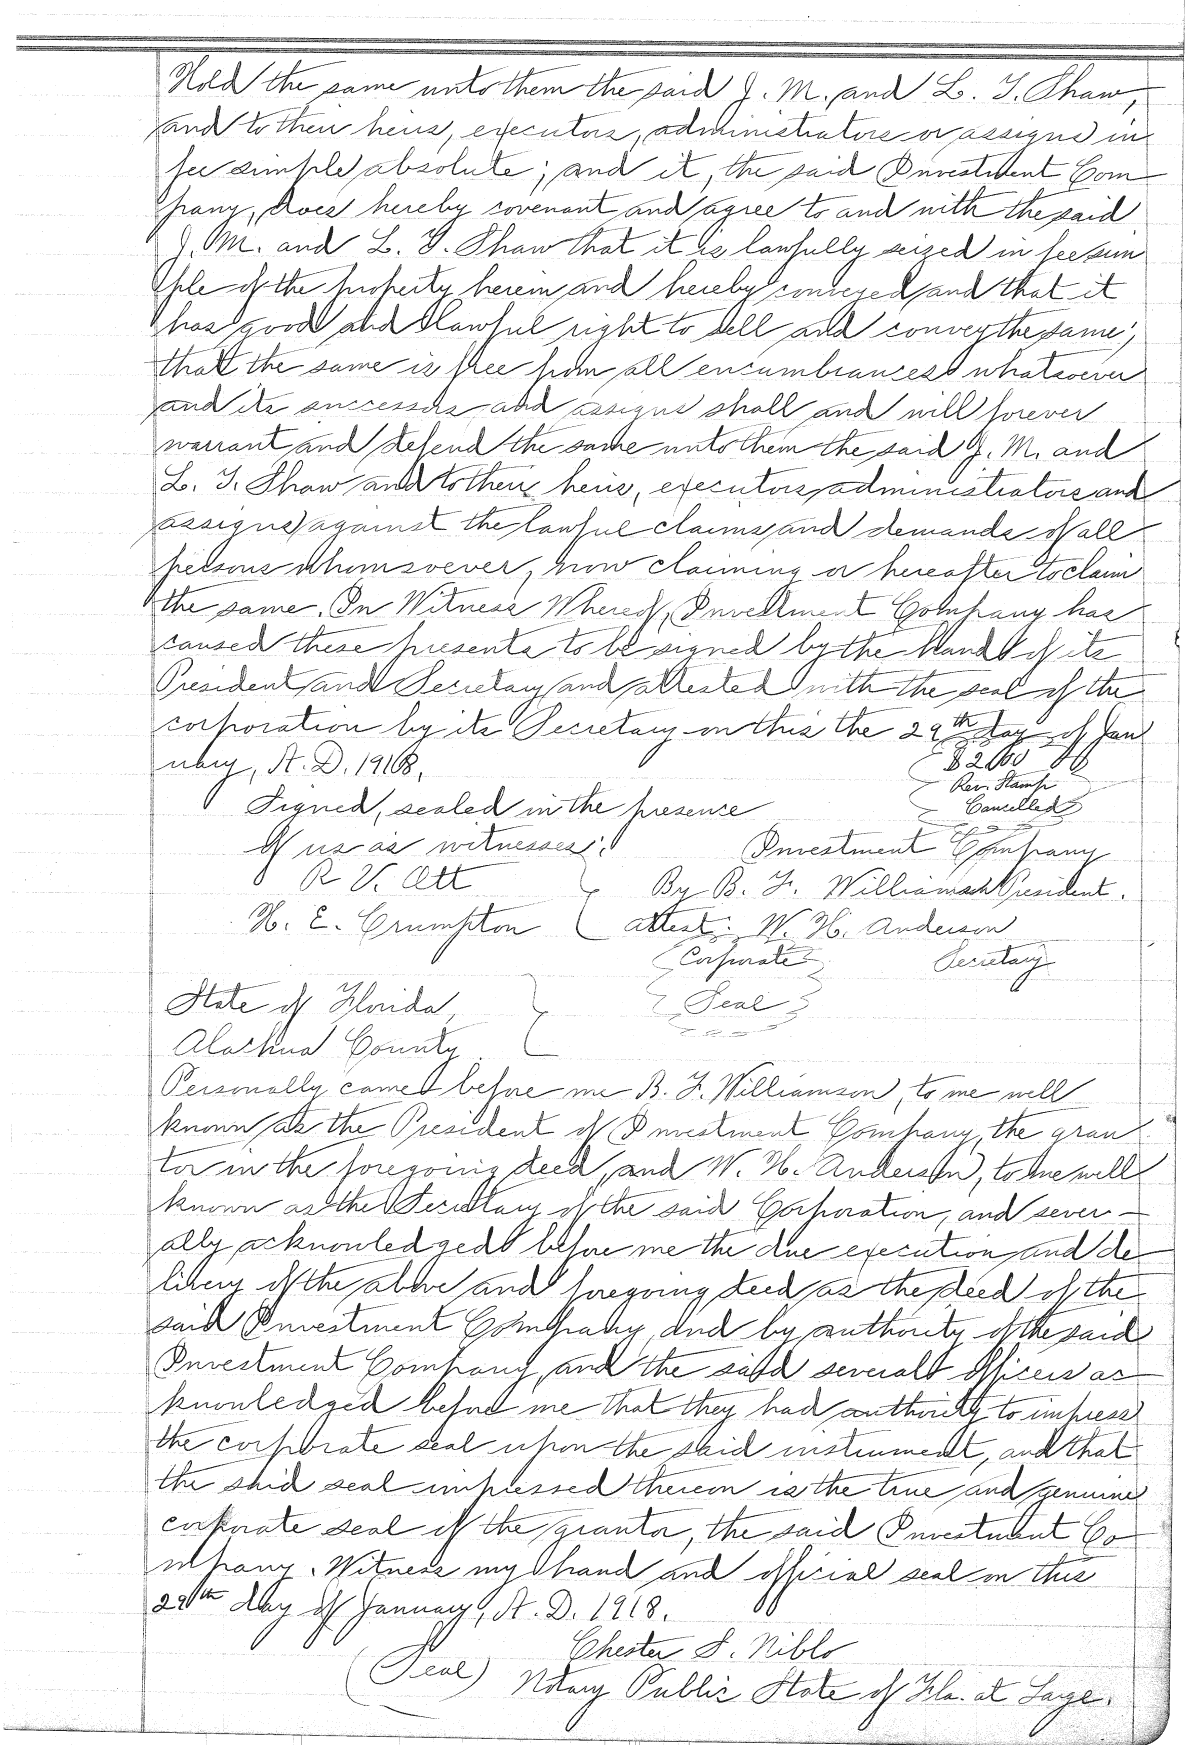 Hold the same unto them the said J. M. and L. T. Shaw,
and to their heirs, executors, administrators or assigns in
fee simple absolute; and it, the said Investment Com
pany, does hereby covenant and agree to and with the said
J. M. and L. T. Shaw that it is lawfully seized in fee sim
ple of the property herein and hereby conveyed and that it
has good and lawful right to sell and convey the same;
that the same is free from all encumbrances whatsoever
and its successors and assigns shall and will forever
warrant and defend the same unto them the said J. M. and
L. T. Shaw and to their heirs, executors, administrators and
assigns against the lawful claims and demands of all
persons whomsoever, now claiming or hereafter to claim
the same. In Witness Whereof, Investment Company has
caused these presents to be signed by the hand of its
President and Secretary and attested with the seal of the
corporation by its Secretary on this the 29th day of Jan
uary, A. D. 1918.
$2.00
Rev. Stamp
Cancelled
Signed, sealed in the presence
of us as witnesses:
Investment Company
R V. Ott
By B. F. Williamson President.
H. E. Crumpton
attest: W. H. Anderson
Corporate
Secretary
Seal
State of Florida,
Alachua County.
Personally came before me B. F. Williamson, to me well
known as the President of Investment Company, the gran
tor in the foregoing deed, and W. H. Anderson, to me well
known as the Secretary of the said Corporation, and sever-
ally acknowledged before me the due execution and de
livery of the above and foregoing deed as the deed of the
said Investment Company, and by authority of the said
Investment Company, and the said several officers ac
knowledged before me that they had authority to impress
the corporate seal upon the said instrument, and that
the said seal impressed thereon is the true and genuine
corporate seal of the grantor, the said Investment Co
mpany. Witness my hand and official seal on this
29th day of January, A. D. 1918.
Chester S. Niblo
(Seal)
Notary Public State of Fla. at Large.